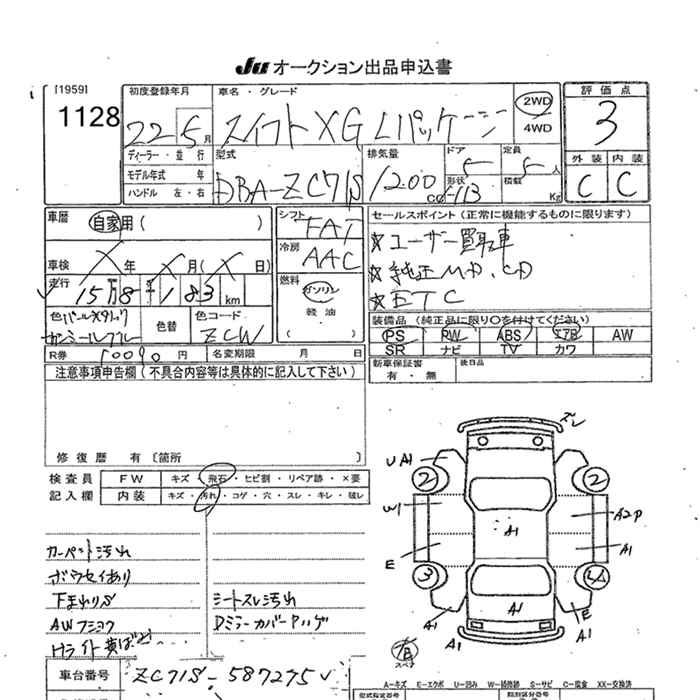 Ju オークション出品申込書
[1959]
1128
初度登録年月
22年5月
車名・グレード
スイフト XG Lパッケージ
2WD
4WD
評価点
3
ディーラー・並行
モデル年式 年
ハンドル 左・右
型式
DBA-ZC71S
排気量
1200
cc
ドア
5
定員
5人
形状
積載
Kg
外装 内装
C C
車歴 自家用( )
シフト
FAT
セールスポイント(正常に機能するものに限ります)
★ユーザー買取車
★純正MD、CD
★ETC
車検 X年 X月(X日)
冷房
AAC
走行 15万8千183km
燃料
ガソリン
軽油
( )
色パールメタリック
ガンメールブルー
色替
色コード
ZCW
装備品(純正品に限り○を付けてください)
PS RW ABS エアB AW
SR ナビ TV カワ
R券 10090円 名変期限 月 日
新車保証書
有・無
後日品
注意事項申告欄(不具合内容等は具体的に記入して下さい)
修復歴 有〔箇所 〕
検査員 FW キズ・飛石・ヒビ割・リペア跡・×要
記入欄 内装 キズ・汚れ・コゲ・穴・スレ・キレ・破レ
カーペット汚れ
ボウセイあり
下まわりS
AWフショク
Hライト黄ばみ
シートスレ汚れ
DミラーカバーPハゲ
ズレ
UA1
2
2
W1
A1
A2P
E
A1
3
A1
E
A1
A1
A1
有
スペナ
車台番号 ZC71S-587275
A=キズ E=エクボ U=凹み W=補修跡 S=サビ C=腐食 XX=交換済
型式指定番号
類別区分番号